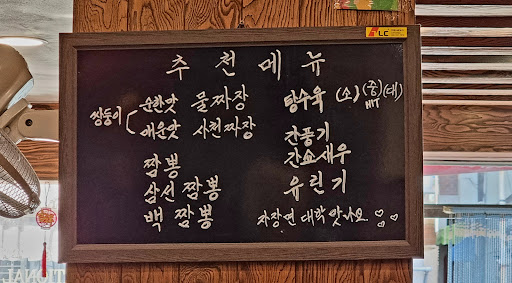 추천메뉴
쌍둥이
순한맛 물짜장
매운맛 사천짜장
짬뽕
삼선 짬뽕
백 짬뽕
탕수육 (소) (중) (대)
HIT
깐풍기
깐쇼새우
유린기
짜장면 대학맛나요 ♡♡♡
LC